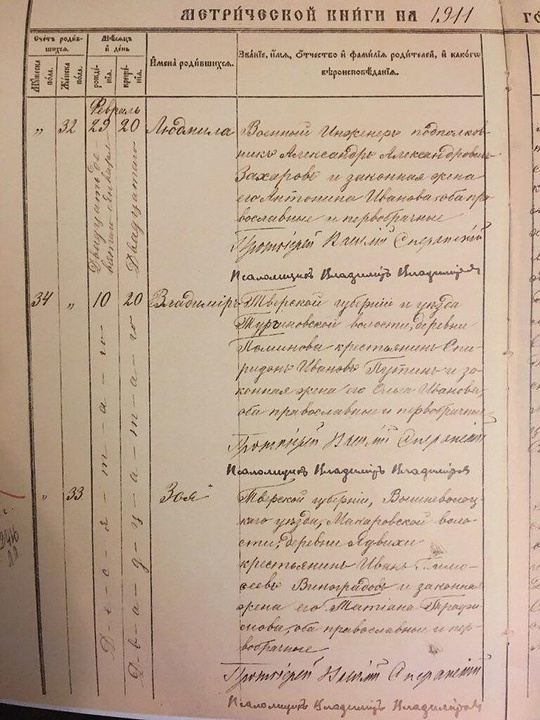 МЕТРИЧЕСКОЙ КНИГИ НА 1911
Счетъ родив-
шихся.
Мѣсяцъ
и день
Мужеска
пола.
Женска
пола.
рожде-
нія.
креще-
нія.
Имена родившихся.
Званіе, имя, отчество и фамилія родителей, и какого
вѣроисповѣданія.
Февраль
„ 32 29 20 Людмила
Двадцать де-
вятаго Января
Двадцатаго
Военный Инженеръ подполков-
никъ Александръ Александровичъ
Захаровъ и законная жена
его Антонина Иванова, оба пра-
вославные и первобрачные
Протоіерей Василій Сперанскій
Псаломщикъ Владиміръ Владиміровъ
34 „ 10 20 Владиміръ
Десятаго
Двадцатаго
Тверской губерніи и уѣзда
Тургиновской волости, деревни
Поминова крестьянинъ Спи-
ридонъ Ивановъ Путинъ и за-
конная жена его Ольга Иванова,
оба православные и первобрачные
Протоіерей Василій Сперанскій
Псаломщикъ Владиміръ Владиміровъ
„ 33 Зоя
Тверской губерніи, Вышневолоц-
каго уѣзда, Макаровской воло-
сти, деревни
крестьянинъ Иванъ Тимо-
феевъ Виноградовъ и законная
жена его Татіана Трофи-
мова, оба православные и пер-
вобрачные
Протоіерей Василій Сперанскій
Псаломщикъ Владиміръ Владиміровъ